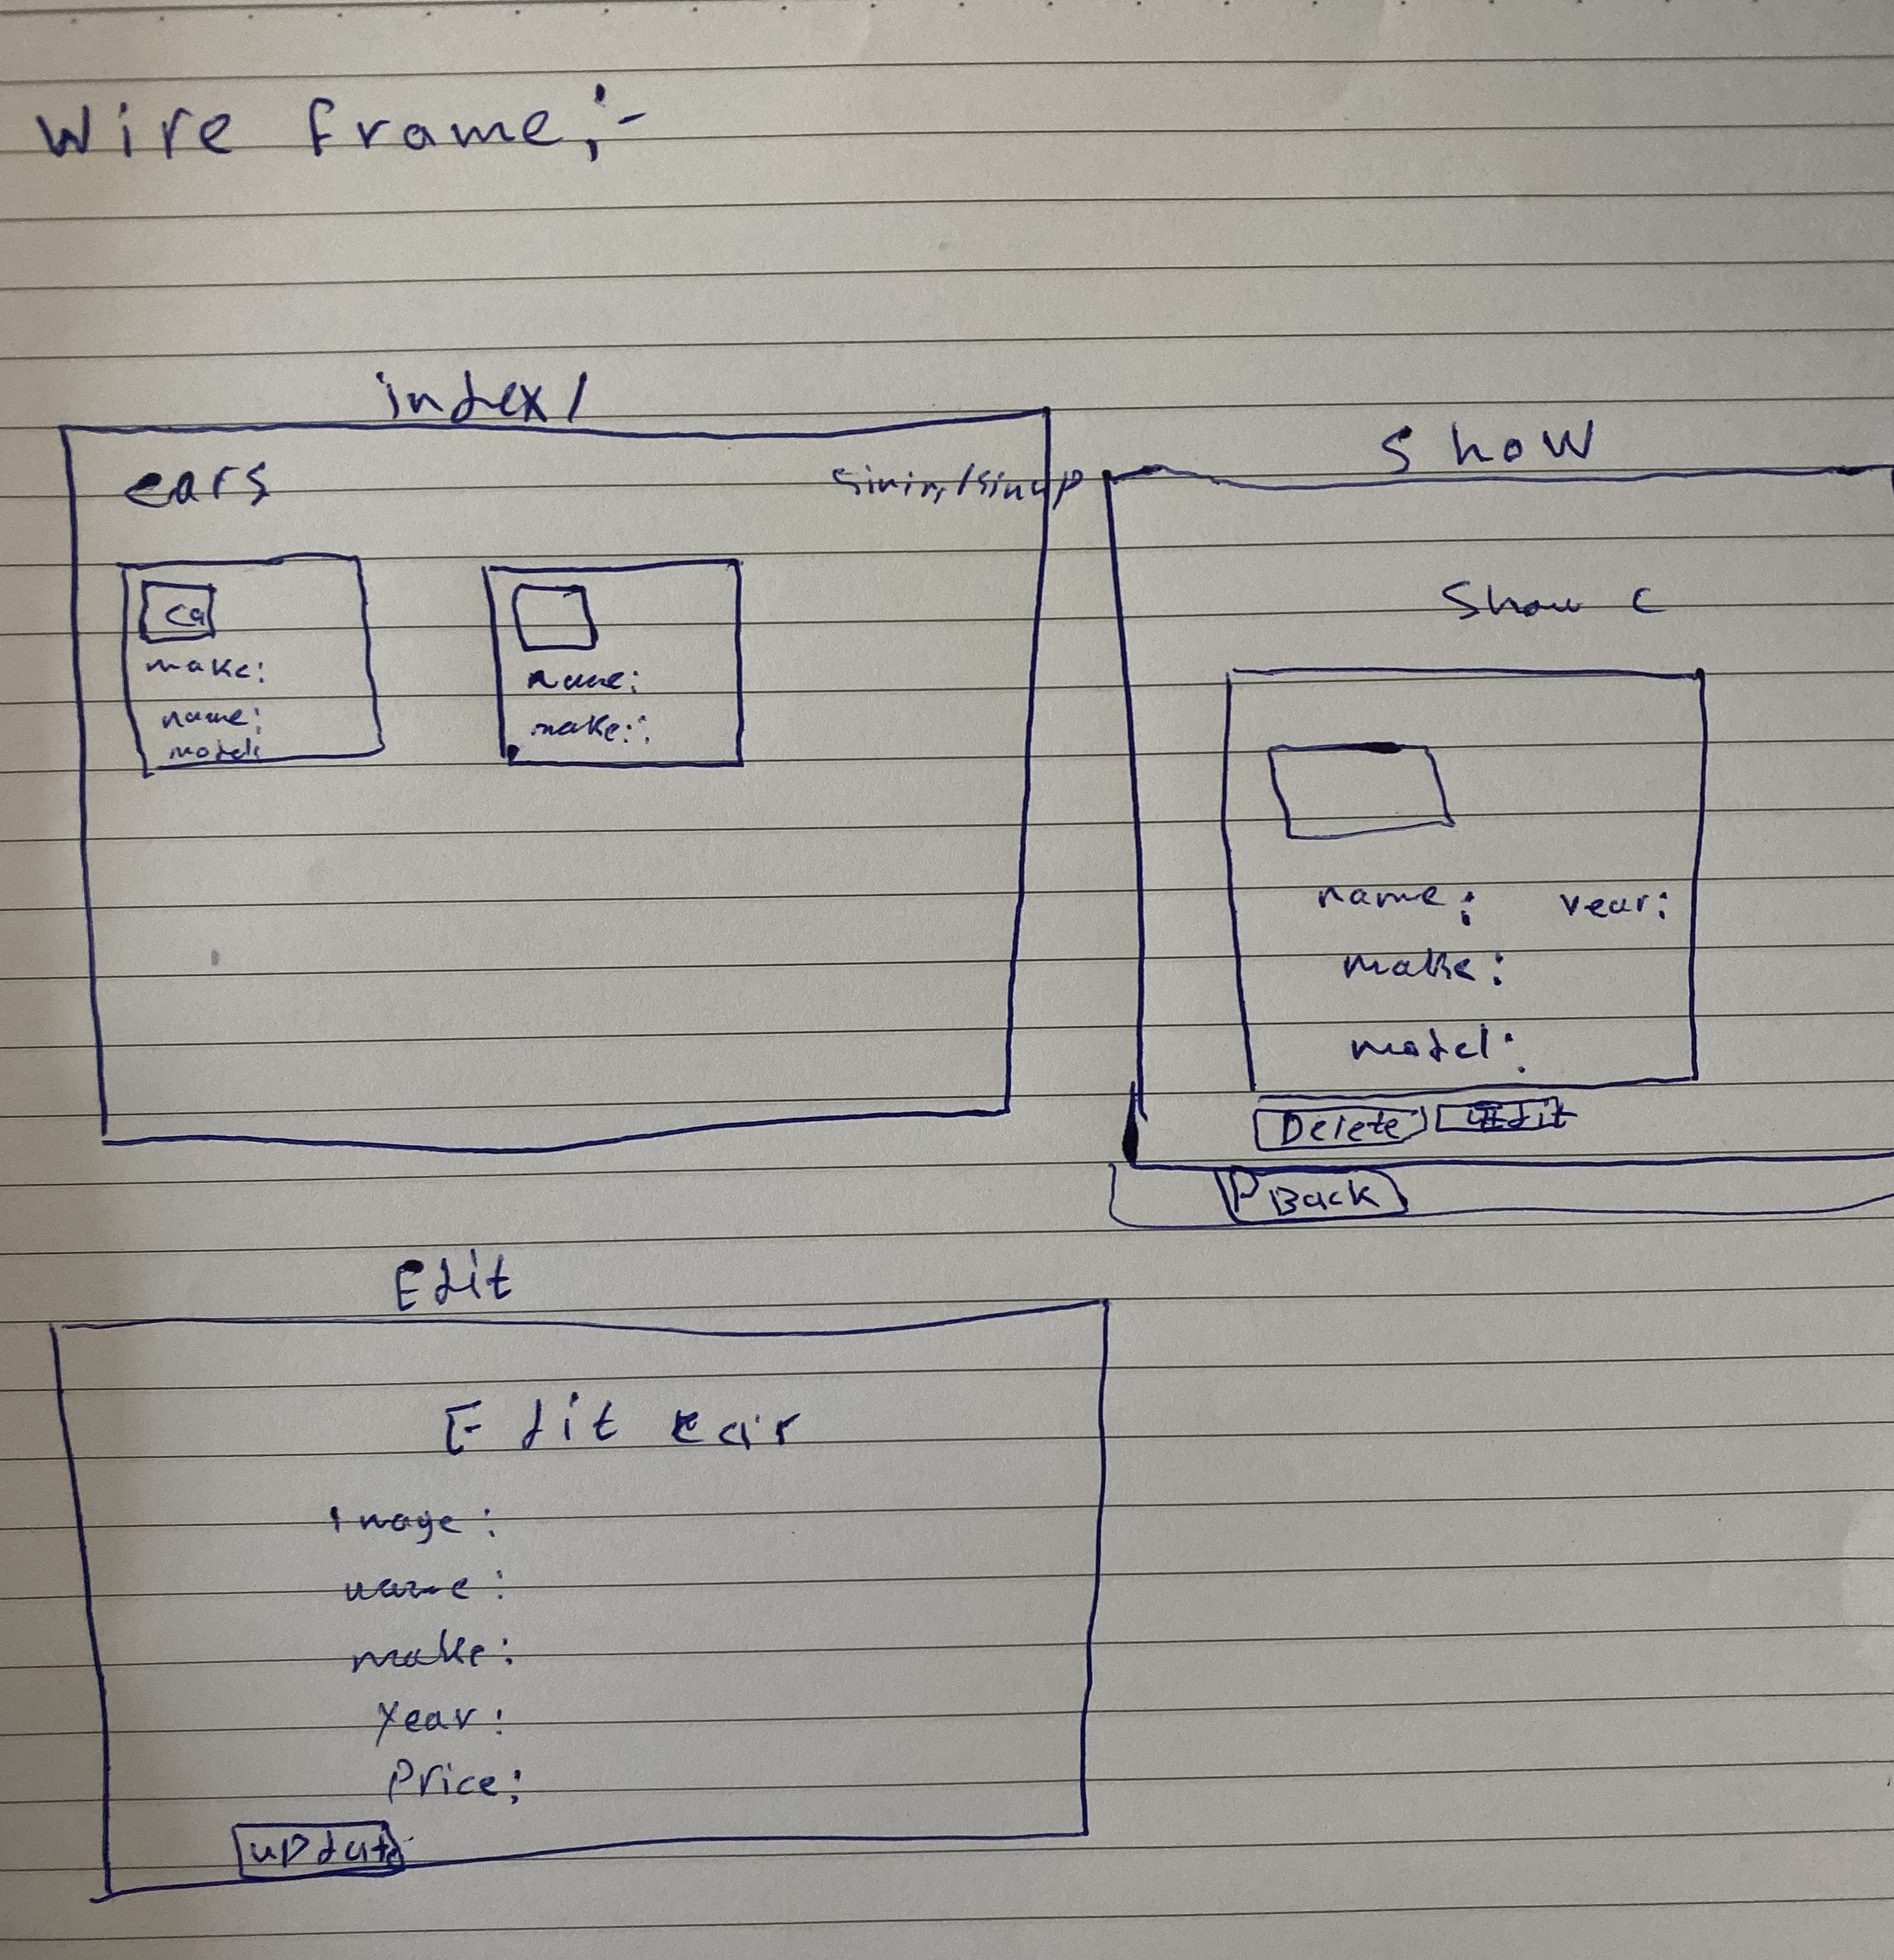 Wire frame:-
index/
cars
Sinin/sinup
ca
make:
name:
model:
name:
make::
Show
Show C
name: year:
make:
model:
Delete Edit
Back
Edit
Edit car
Image:
name:
make:
Year:
Price:
update